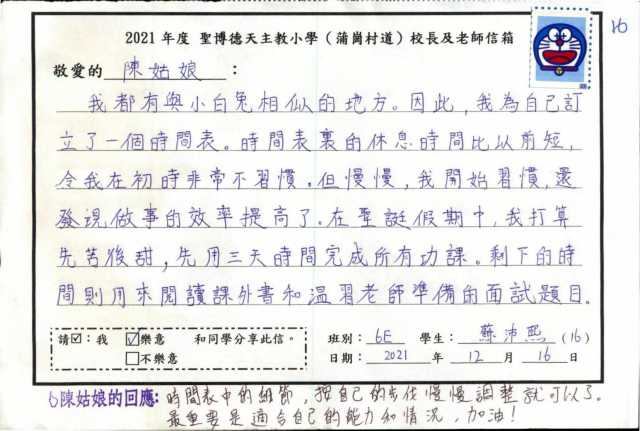 16
2021 年度 聖博德天主教小學（蒲崗村道）校長及老師信箱
敬愛的 陳姑娘 ：
我都有與小白兔相似的地方。因此，我為自己訂
立了一個時間表。時間表裏的休息時間比以前短，
令我在初時非常不習慣。但慢慢，我開始習慣，還
發現做事的效率提高了。在聖誕假期中，我打算
先苦後甜，先用三天時間完成所有功課。剩下的時
間則用來閱讀課外書和温習老師準備的面試題目。
請☑：我 ☑樂意 和同學分享此信。
□不樂意
班別： 6E 學生： 蘇沛熙 (16)
日期： 2021 年 12 月 16 日
陳姑娘的回應：時間表中的細節，按自己的步伐慢慢調整就可以了。
最重要是適合自己的能力和情況，加油！